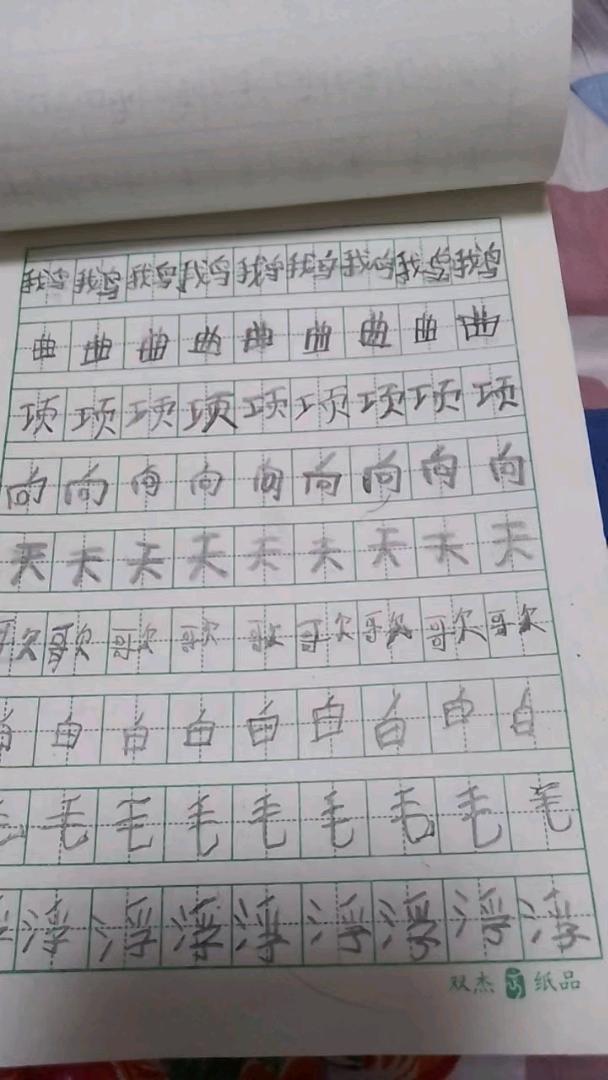 鹅鹅鹅鹅鹅鹅鹅鹅鹅
曲曲曲曲曲曲曲曲曲
项项项项项项项项项
向向向向向向向向向
天天天天天天天天天
歌歌歌歌歌歌歌歌歌
白白白白白白白白白
毛毛毛毛毛毛毛毛毛
浮浮浮浮浮浮浮浮浮
双杰 纸品